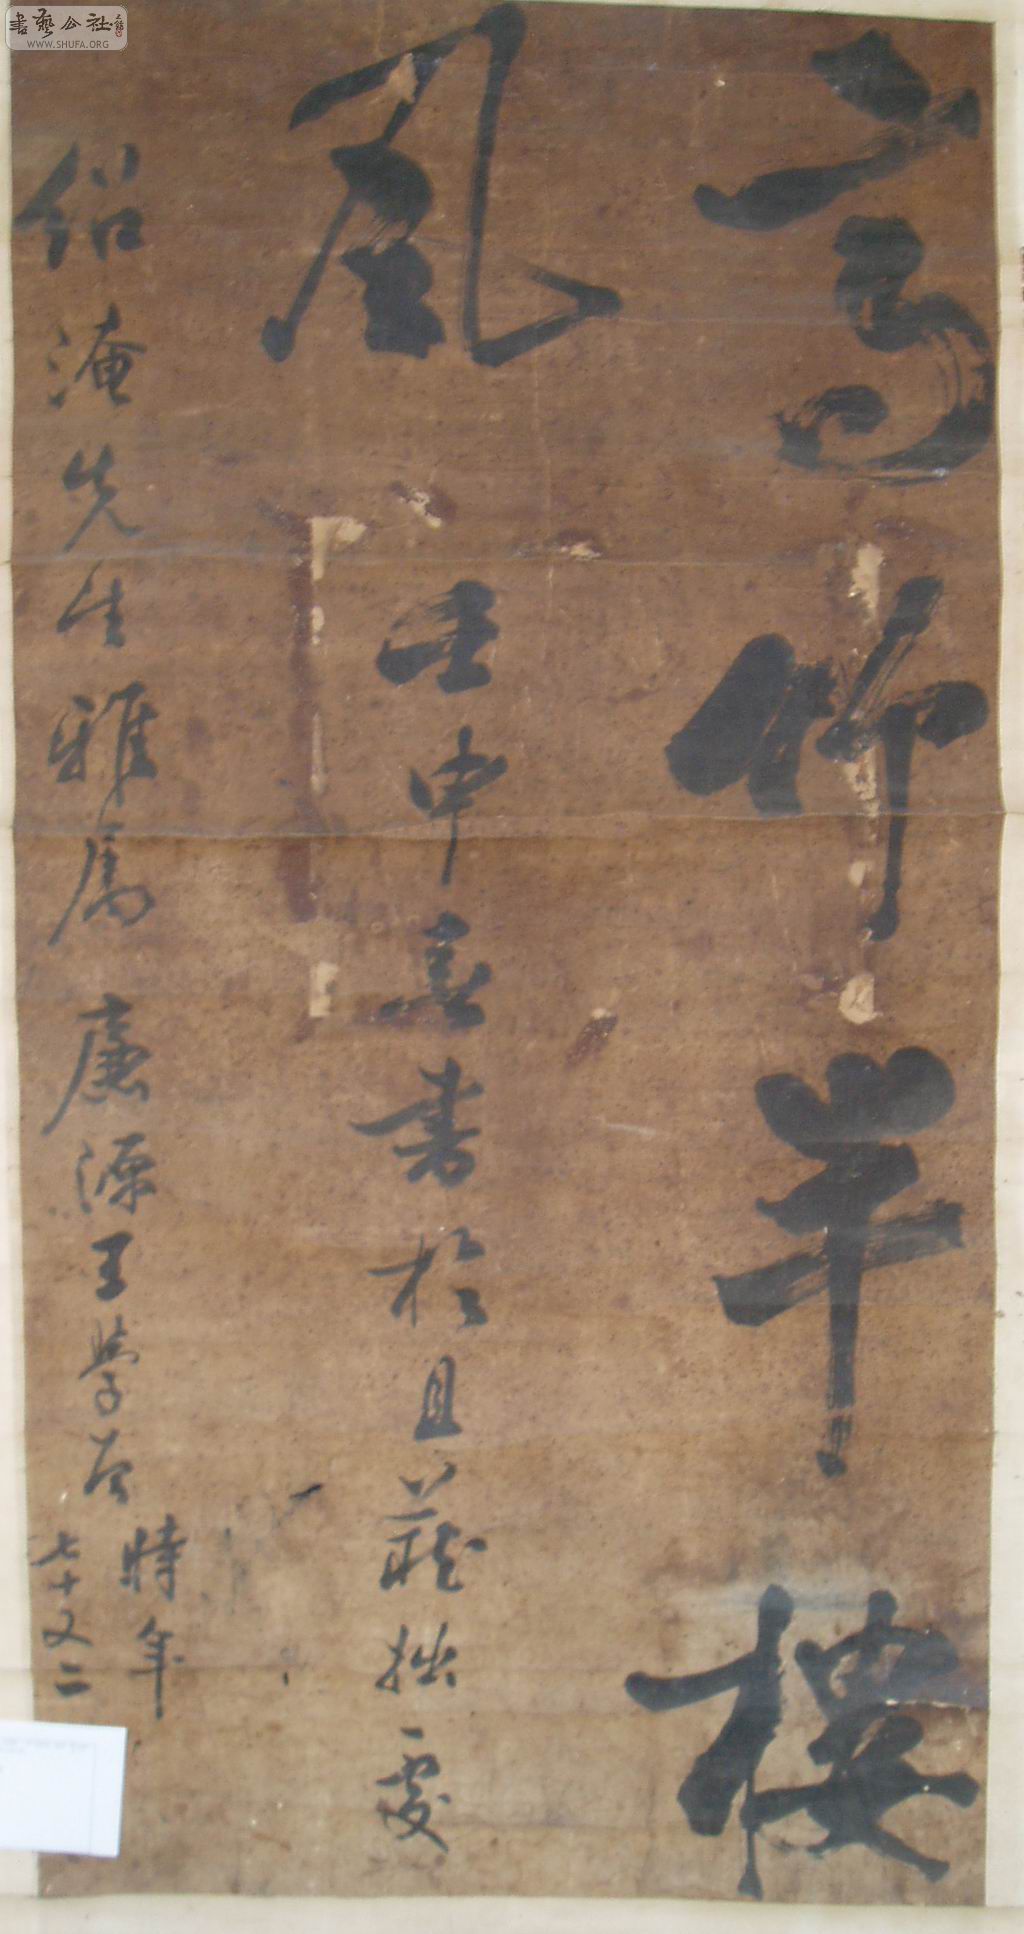 書藝公社
WWW.SHUFA.ORG
高竹半樓
風
壬申春書於且藏拙處
紹淹先生雅属 廉源王學
時年
七十又二